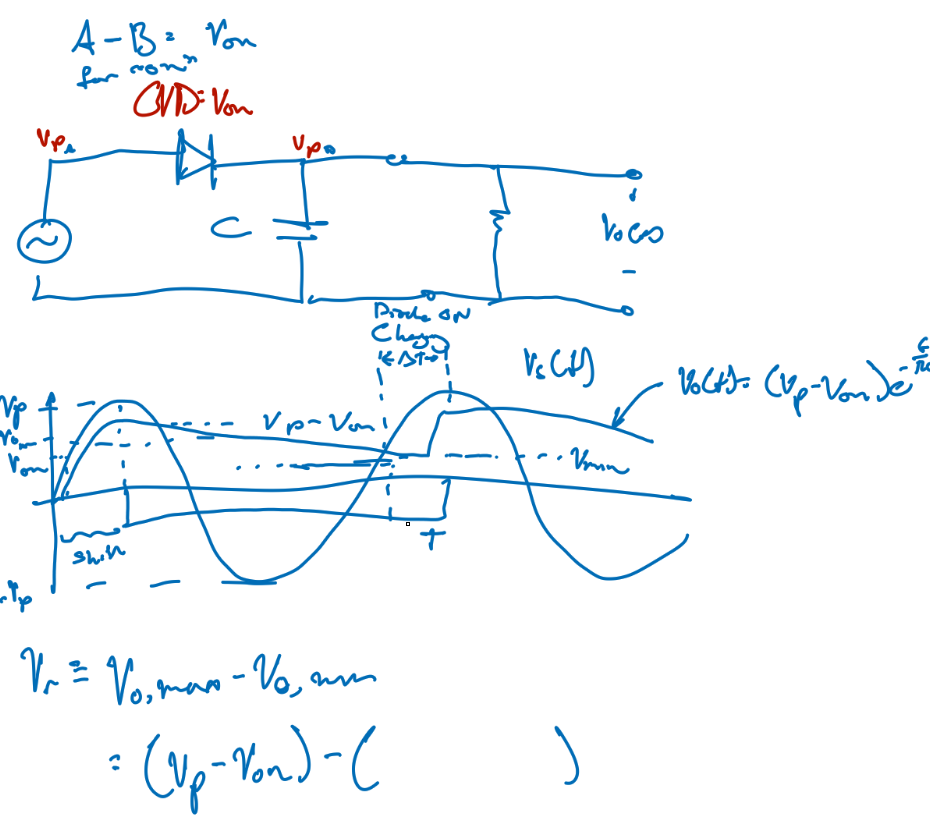 A - B = Von
for "on"
CVD = Von
Vp
Vp
C
Vo(t)
-
Diode ON
Charge
← ΔT →
Vs(t)
Vo(t) = (Vp - Von) e
Vp
Vp - Von
Von
Vmin
shift
T
-Vp
Vr ≡ Vo,max - Vo,min
= (Vp - Von) - ( )